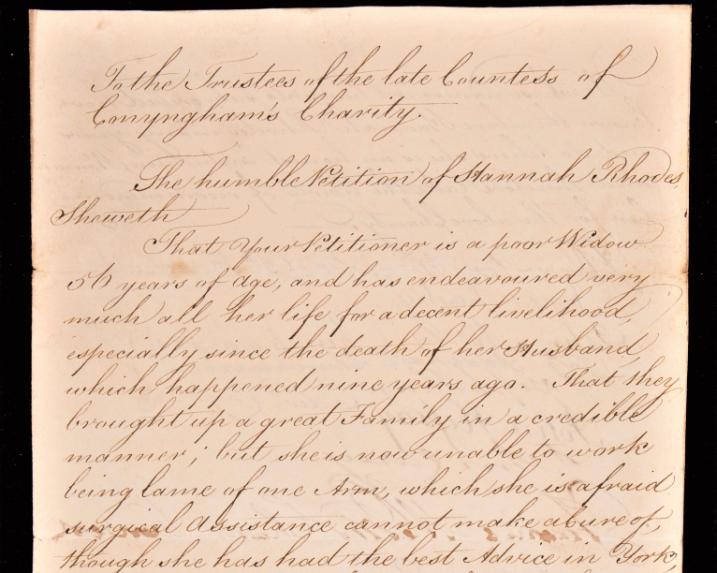 To the Trustees of the late Countess of
Conyngham's Charity.
The humble Petition of Hannah Rhodes,
Sheweth
That Your Petitioner is a poor Widow
56 years of age, and has endeavoured very
much all her life for a decent livelihood,
especially since the death of her Husband
which happened nine years ago. That they
brought up a great Family in a credible
manner; but she is now unable to work
being lame of one Arm, which she is afraid
surgical Assistance cannot make a cure of,
though she has had the best Advice in York,